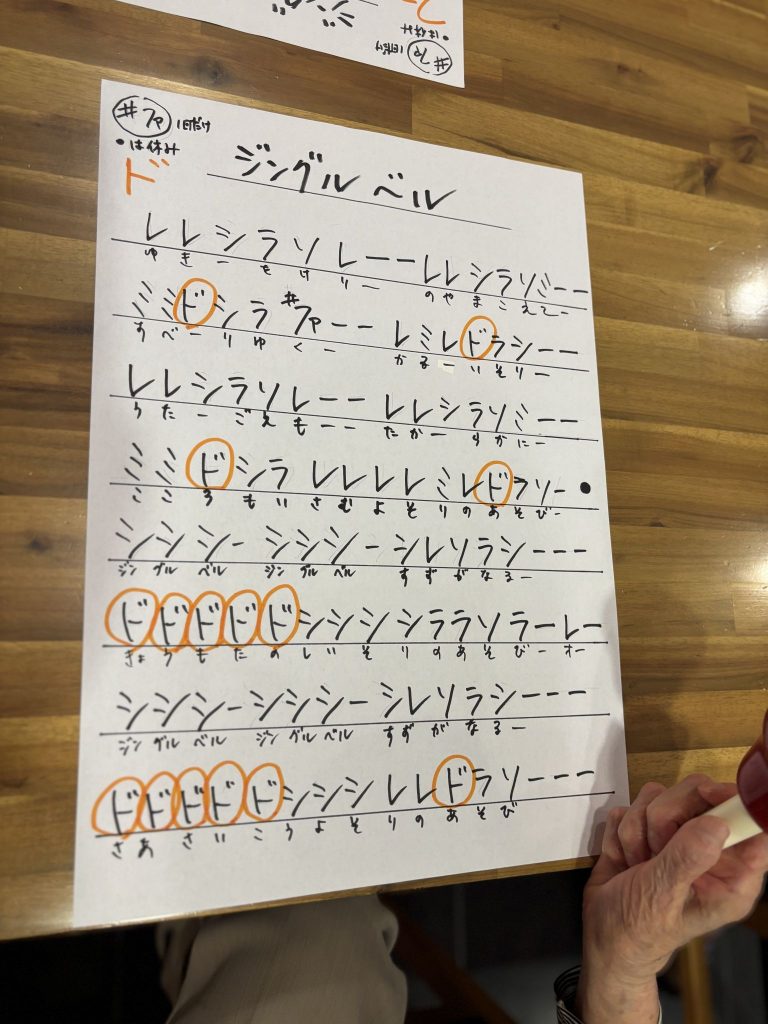 #ファ 1回だけ
•は休み
#ファ 1回だけ
•は休み
ド
ジングルベル
レレシラソレーーレレシラソミーー
ゆきーをけりー のやまこえてー
ミミドシラ#ファーー レミレドラシーー
すべーりゆくー かるーいそりー
レレシラソレーー レレシラソミーー
うたーごえもーー たかーらかにー
ミミドシラ レレレレミレドラソー●
こころもいさむよそりのあそびー
シシシー シシシー シレソラシーーー
ジングルベル ジングルベル すずがなるー
ドドドドドシシシシララソラーレー
きょうもたのしいそりのあそびーオー
シシシーシシシー シレソラシーーー
ジングルベル ジングルベル すずがなるー
ドドドドドシシシ レレドラソーーー
さあさいこうよそりのあそび